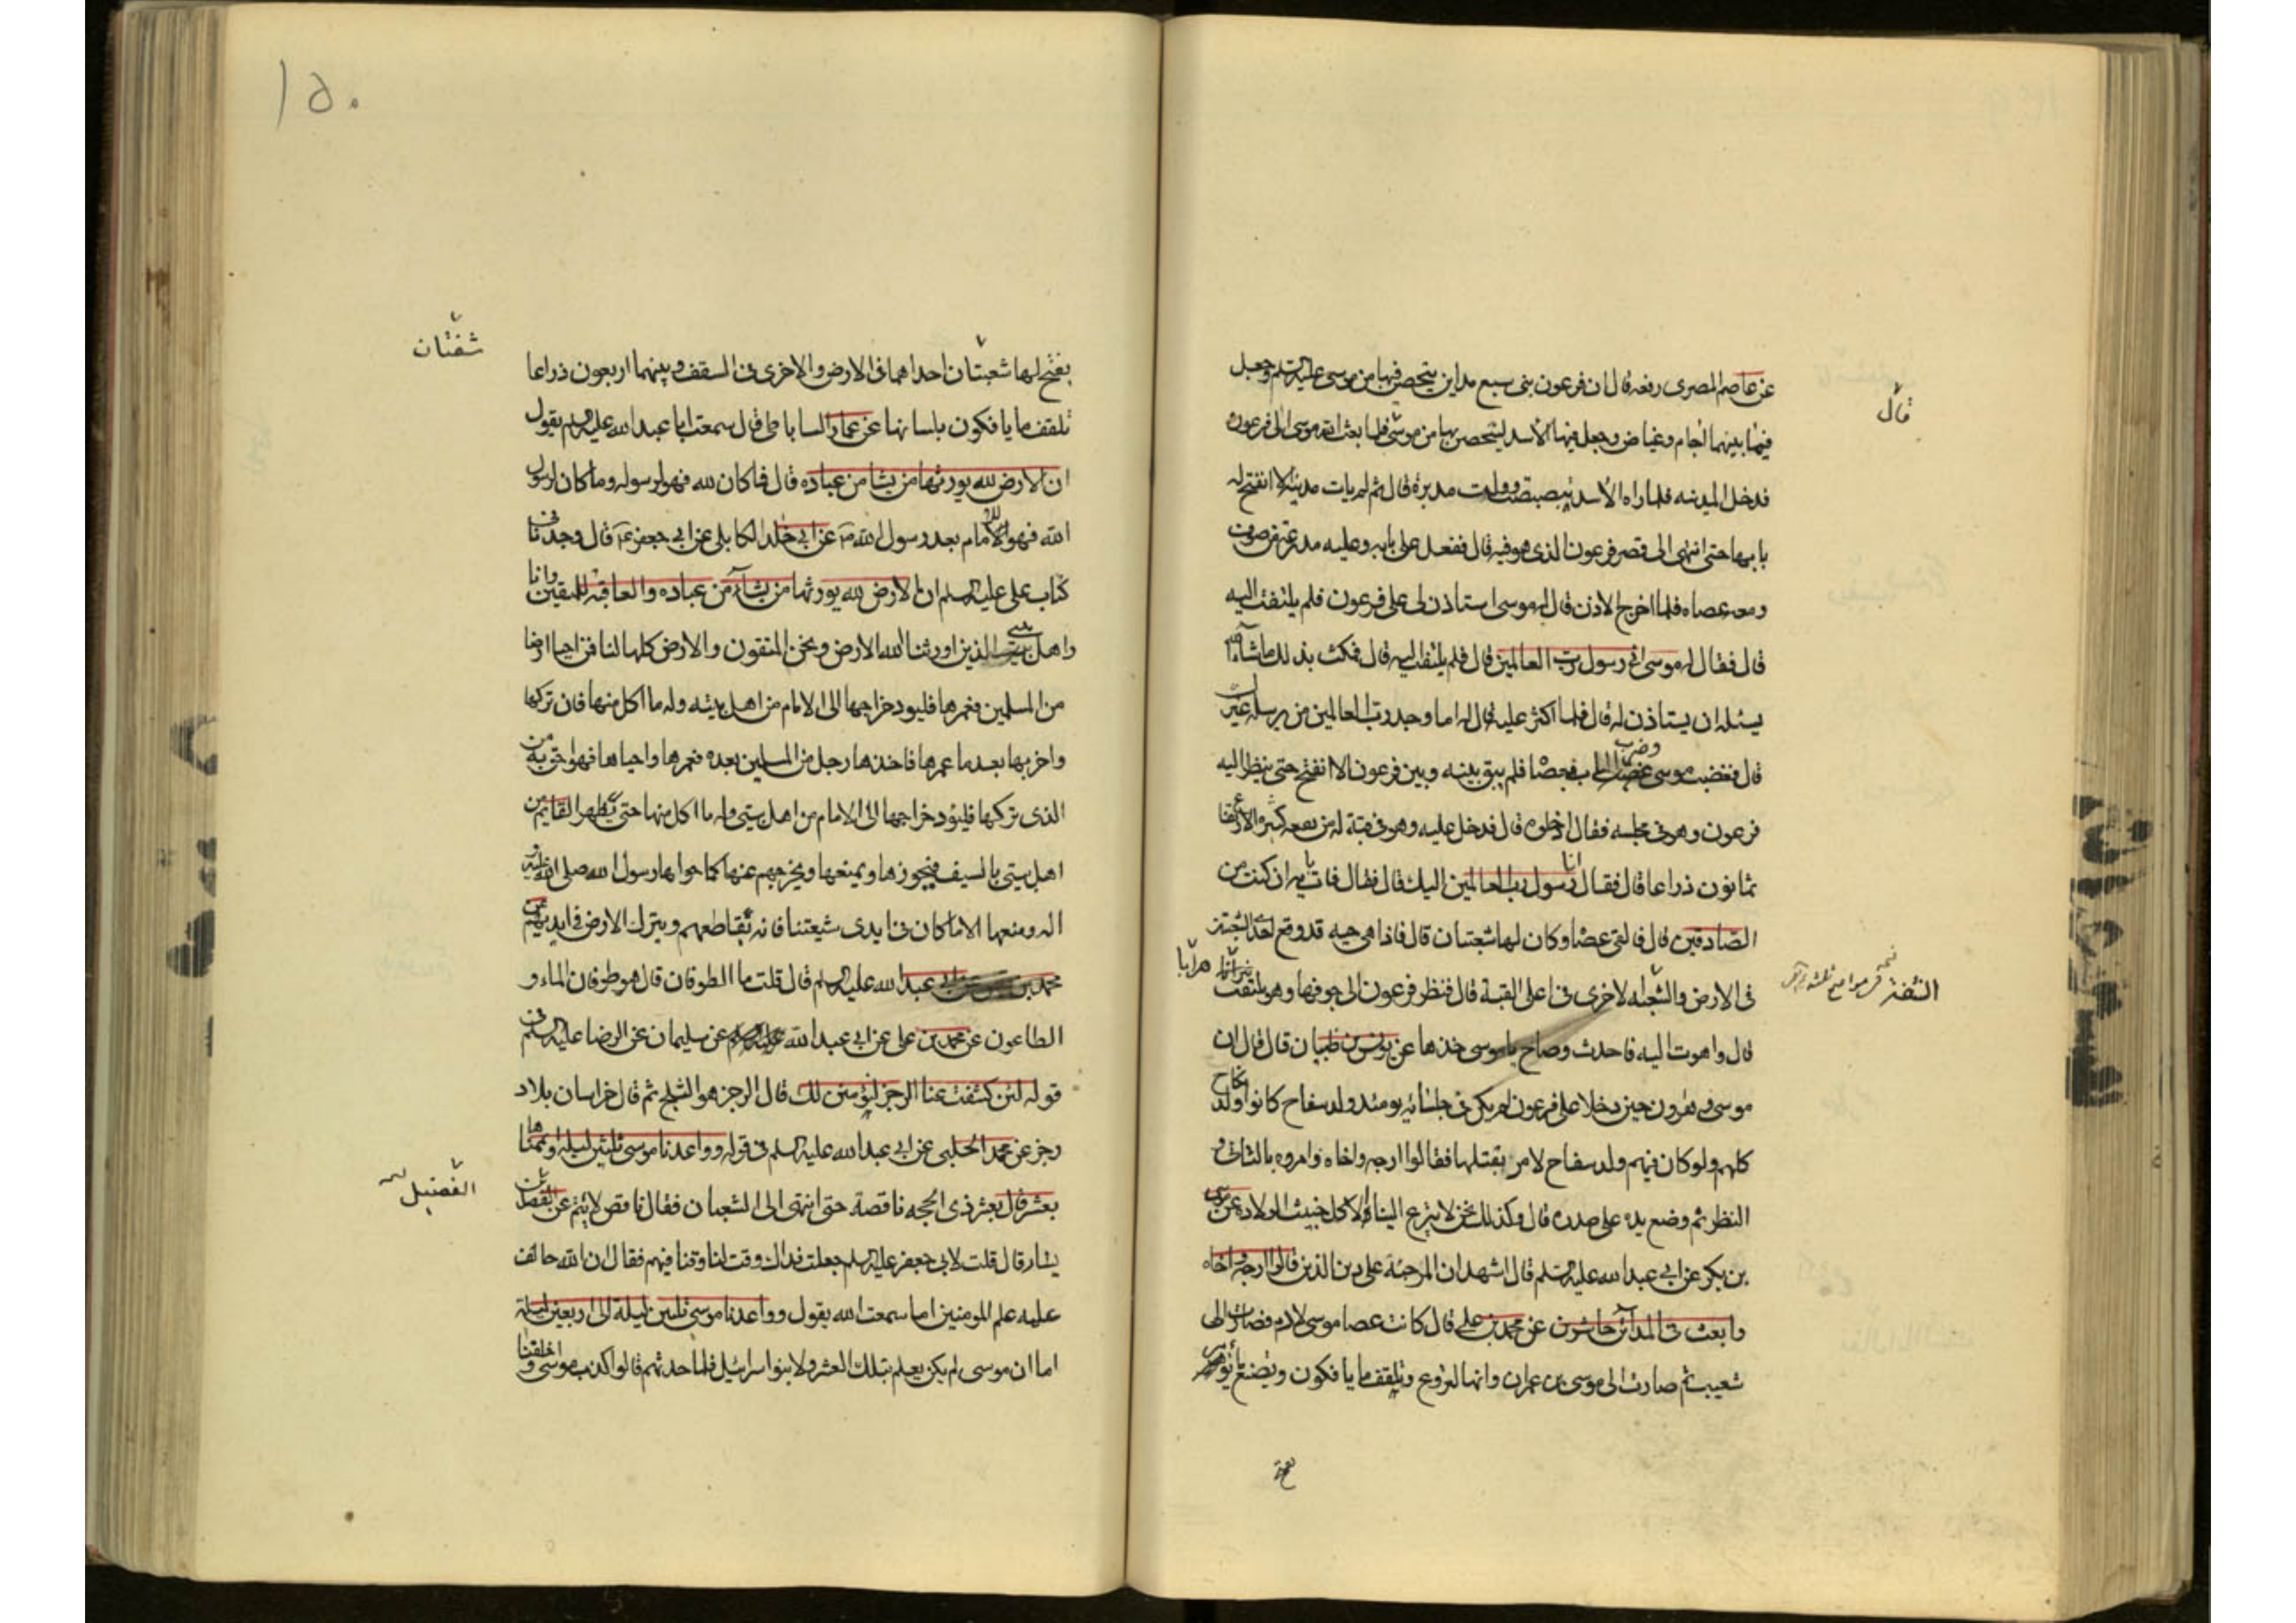 عن عاصم المصرى رفعه قال ان فرعون بنى سبع مداين يتحصن فيها من موسى عليه السلم وجعل
قال
فيما بينهما اجام وغياض وجعل فيها الاسد ليتحصن بها من موسى فلما بعث الله موسى الى فرعون
فدخل المدينه فلما راه الاسد تبصبصت وولت مدبرة قال ثم لم يات مدينة الا انفتح له
بابها حتى انتهى الى قصر فرعون الذى هو فيه قال فقعد على بابه وعليه مدرعة من صوف
ومعه عصاه فلما خرج الاذن قال له موسى استاذن لى على فرعون فلم يلتفت اليه
قال فقال له موسى انى رسول رب العالمين قال فلم يلتفت اليه قال فمكث بذلك ما شاء الله
يسئله ان يستاذن له قال فلما اكثر عليه قال له اما وجد رب العالمين من يرسله غيرك
قال فغضب موسى وضرب الباب بعصا فلم يبق بينه وبين فرعون الا انفتح حتى ينظر اليه
فرعون وهو فى مجلسه فقال ادخلوه قال فدخل عليه وهو فى قبة له من بقعه كثيره الارتفاع
ثمانون ذراعا قال فقال انا رسول رب العالمين اليك قال فقال فات باية ان كنت من
الصادقين قال فالقى عصا وكان لها شعبتان قال فاذا هى حيه قد وقع احدى الشعبتين
فى الارض والشعبه الاخرى فى اعلى القبة قال فنظر فرعون الى جوفها وهو يلتهب نيرانا
قال واهوت اليه فاحدث وصاح يا موسى خذها عن يونس بن ظبيان قال قال ان
موسى وهرون حين دخلا على فرعون لم يكن فى جلسائه يومئذ ولد سفاح كانوا ولد نكاح
كلهم ولو كان فيهم ولد سفاح لامر بقتلهما فقالوا ارجه واخاه وامروه بالتانى و
النظر ثم وضع يده على صدره قال وكذلك نحن لا ينزع الينا الا كل خبيث الولادة عن موسى
بن بكر عن ابى عبدالله عليه السلم قال اشهد ان المرجئة على دين الذين قالوا ارجه واخاه
وابعث فى المدائن حاشرين عن محمد بن على قال كانت عصا موسى لادم فصارت الى
شعيب ثم صارت الى موسى بن عمران وانها لتروع وتلقف ما يافكون وتصنع ما تؤمر
يفتح
١٥٠
يفتح لها شعبتان احداهما فى الارض والاخرى فى السقف وبينهما اربعون ذراعا
شفتان
تلقف ما يافكون بلسانها عن عمار الساباطى قال سمعت ابا عبدالله عليه السلم يقول
ان الارض لله يورثها من يشا من عباده قال فما كان لله فهو لرسوله وما كان لرسول
الله فهو للامام بعد رسول الله ص عن ابى خلد الكابلى عن ابى جعفر ع قال وجدنا فى
كتاب على عليه السلم ان الارض لله يورثها من يشاء من عباده والعاقبة للمتقين وانا
واهل بيتى الذين اورثنا الله الارض ونحن المتقون والارض كلها لنا فمن احيا ارضا
من المسلمين فعمرها فليود خراجها الى الامام من اهل بيته وله ما اكل منها فان تركها
واخربها بعد ما عمرها فاخذها رجل من المسلمين بعده فعمرها واحياها فهو احق به من
الذى تركها فليؤد خراجها الى الامام من اهل بيتى وله ما اكل منها حتى يظهر القايم من
اهل بيتى بالسيف فيحوزها ويمنعها ويخرجهم عنها كما حواها رسول الله صلى الله عليه و
اله ومنعها الا ما كان فى ايدى شيعتنا فانه يقاطعهم ويترك الارض فى ايديهم عن
محمد بن عن ابى عبدالله عليه السلم قال قلت ما الطوفان قال هو طوفان الماء و
الطاعون عن محمد بن على عن ابى عبدالله عليه السلم عن سليمان عن الرضا عليه السلم فى
قوله لئن كشفت عنا الرجز لنؤمنن لك قال الرجز هو الثلج ثم قال خراسان بلاد
رجز عن محمد الحلبى عن ابى عبدالله عليه السلم فى قوله وواعدنا موسى ثلثين ليله واتممناها
بعشر قال بعشر ذى الحجه ناقصة حتى انتهى الى الشعبان فقال ناقص لا يتم عن الفضل بن
الفضيل
يسار قال قلت لابى جعفر عليه السلم جعلت فداك وقت لنا وقتا فيهم فقال ان الله خالف
علمه علم الموقتين اما سمعت الله يقول وواعدنا موسى ثلثين ليلة الى اربعين ليلة
اما ان موسى لم يكن يعلم بتلك العشر ولا بنوا اسرائيل فلما حدثهم قالوا كذب موسى واخلفنا